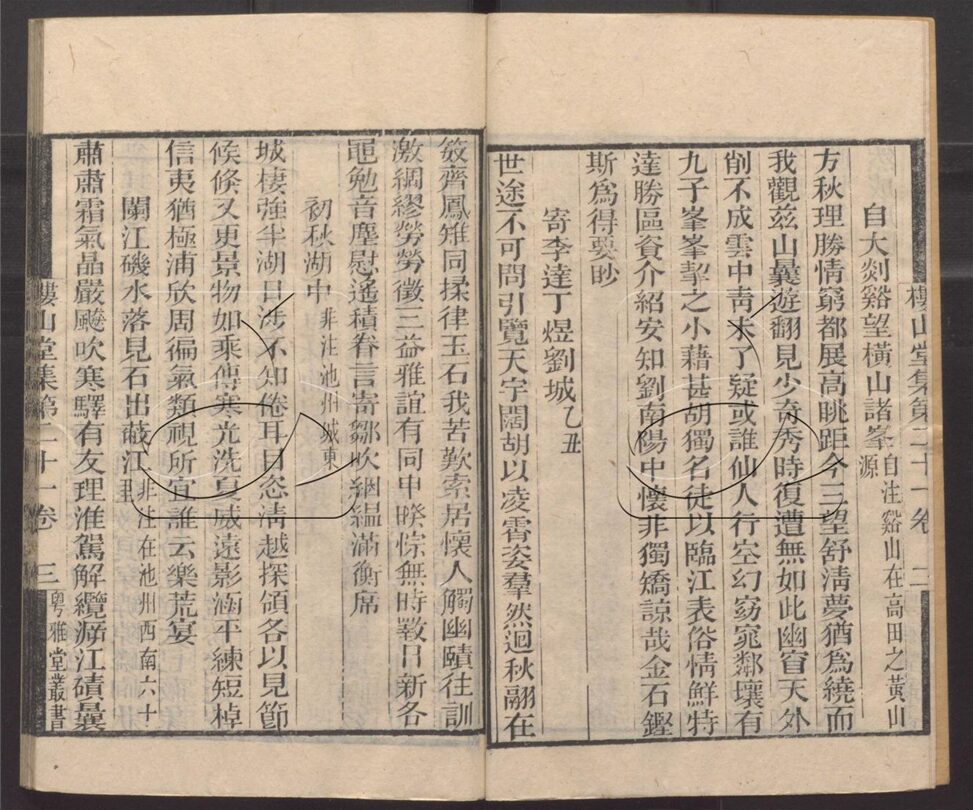 樓山堂集第二十一卷 二
自大剡谿望橫山諸峯自注谿山在高田之黃山源
方秋理勝情窮都展高眺距今三望舒淸夢猶爲繞而
我觀茲山曩遊翻見少奇秀時復遭無如此幽窅天外
削不成雲中靑未了疑或誰仙人行空幻窈窕鄰壤有
九子峯峯挐之小藉甚胡獨名徒以臨江表俗情鮮特
達勝區資介紹安知劉南陽中懷非獨矯諒哉金石鏗
斯爲得要眇
寄李達丁煜劉城乙丑
世途不可問引覽天宇闊胡以凌霄姿羣然迴秋翮在
斂齊鳳雉同揉律玉石我苦歎索居懷人觸幽賾往訓
激綢繆勞勞徵三益雅誼有同申暌悰無時斁日新各
黽勉音塵慰遙積眷言寄鄒吹絪縕滿衡席
初秋湖中 非注池州城東
城棲強半湖日涉不知倦耳目恣淸越探領各以見節
候倏又更景物如乘傳寒光洗夏威遠影涵平練短棹
信夷猶極浦欣周徧氣類視所宜誰云樂荒宴
闌江磯水落見石出蔽江 非注在池州西南六十里
肅肅霜氣晶嚴飈吹寒驛有友理淮駕解纜痹江磧曩
樓山堂集第二十一卷 三 粤雅堂叢書